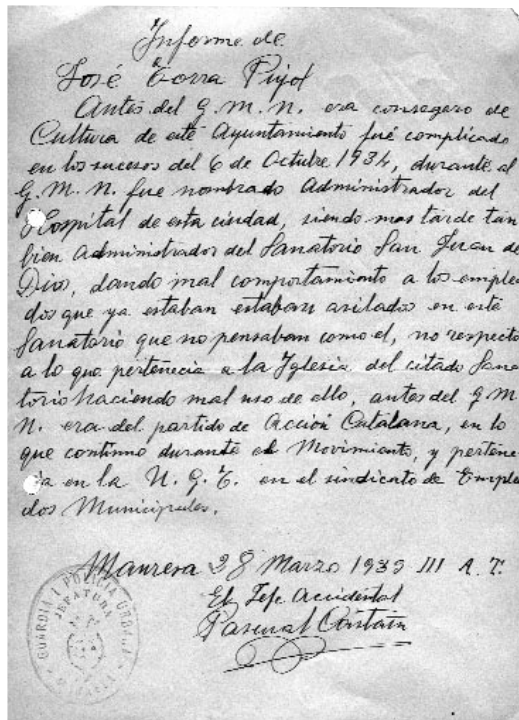 Informe de
José Torra Pujol
Antes del G. M. N. era consegero de
Cultura de este Ayuntamiento fué complicado
en los sucesos del 6 de Octubre 1934, durante el
G. M. N. fue nombrado Administrador del
Hospital de esta ciudad, siendo mas tarde tan
bien Administrador del Sanatorio San Juan de
Dios, dando mal comportamiento a los emplea
dos que ya estaban estaban asilados en este
Sanatorio que no pensaban como el, no respecto
a lo que pertenecia a la Iglesia del citado Sana
torio haciendo mal uso de ello, antes del G. M.
N. era del partido de Acción Catalana, en lo
que continuo durante el Movimiento, y pertene
ia en la U. G. T. en el sindicato de Emplea
dos Municipales.
Manresa 28 Marzo 1939 III A. T.
El Jefe Accidental
Pascual
GUARDIA I POLICIA URBANA
JEFATURA
MANRESA